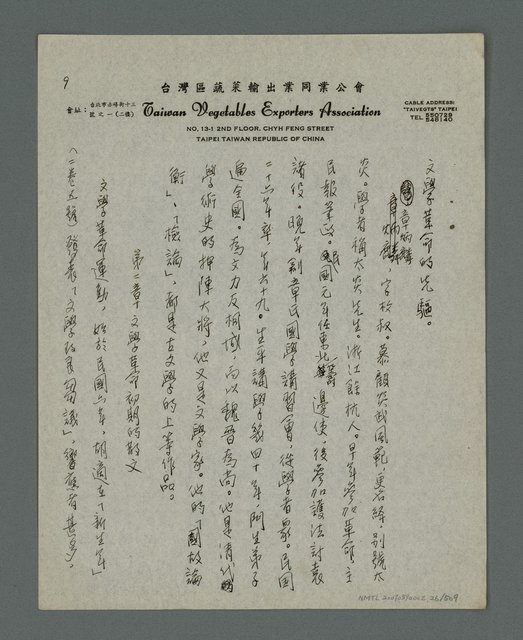 9
台灣區蔬菜輸出業同業公會
會址：台北市赤峰街十三號之一(二樓)
Taiwan Vegetables Exporters Association
CABLE ADDRESS:
"TAIVEGTS" TAIPEI
TEL 550729
548140
NO. 13-1 2ND FLOOR, CHYH FENG STREET
TAIPEI TAIWAN REPUBLIC OF CHINA
文學革命的先驅。
章炳麟，字枚叔。慕顧炎武風範，更名絳，別號太
炎。學者稱太炎先生。浙江餘杭人。早年參加革命，主
民報筆政。民國元年任東北籌邊使，後參加護法討袁
諸役。晚年創章氏國學講習會，從學者眾。民國
二十五年卒，年六十九。生平講學約四十年，門生弟子
遍全國。為文力反桐城，而以魏晉為尚。他是清代
學術史的押陣大將，他又是文學家。他的「國故論
衡」、「檢論」，都是古文學的上等作品。
第二章 文學革命初期的散文
文學革命運動，始於民國六年，胡適在「新青年」
(二卷五號)發表了「文學改良芻議」，響應者甚多。
NMTL 2007059002 26/509